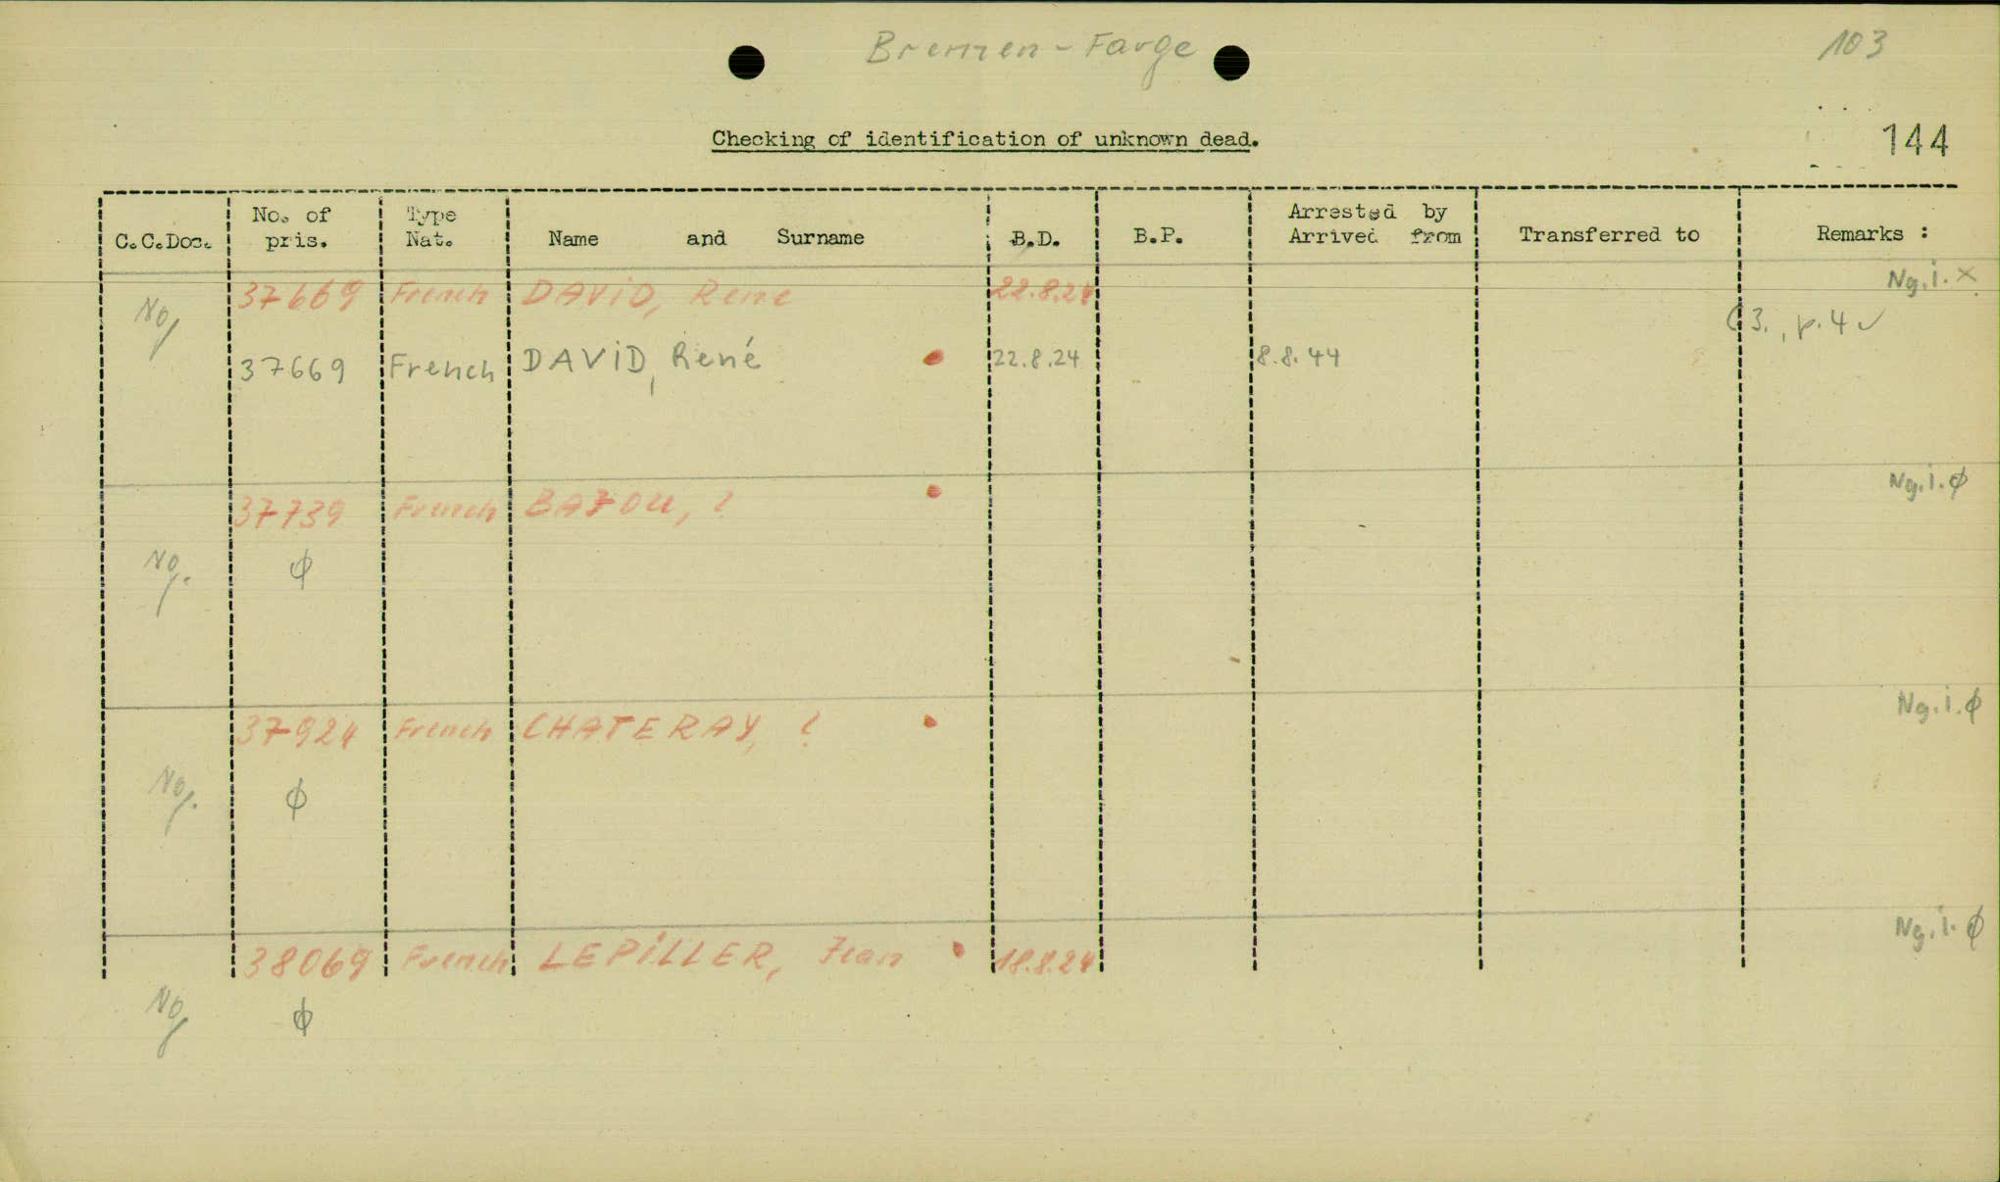 Bremen-Farge
103
Checking of identification of unknown dead.
144
C.C.Doc. No. of pris. Type Nat. Name and Surname B.D. B.P. Arrested by Arrived from Transferred to Remarks :
37669 French DAVID, Rene 22.8.24 Ng.i. x
No
C3., p.4 ✓
37669 French DAVID, René 22.8.24 8.8.44
37739 French BAZOU, ? Ng.i. ϕ
No. ϕ
37924 French CHATERAY, ? Ng.i. ϕ
No. ϕ
38069 French LEPILLER, Jean 18.8.24 Ng.i. ϕ
No ϕ